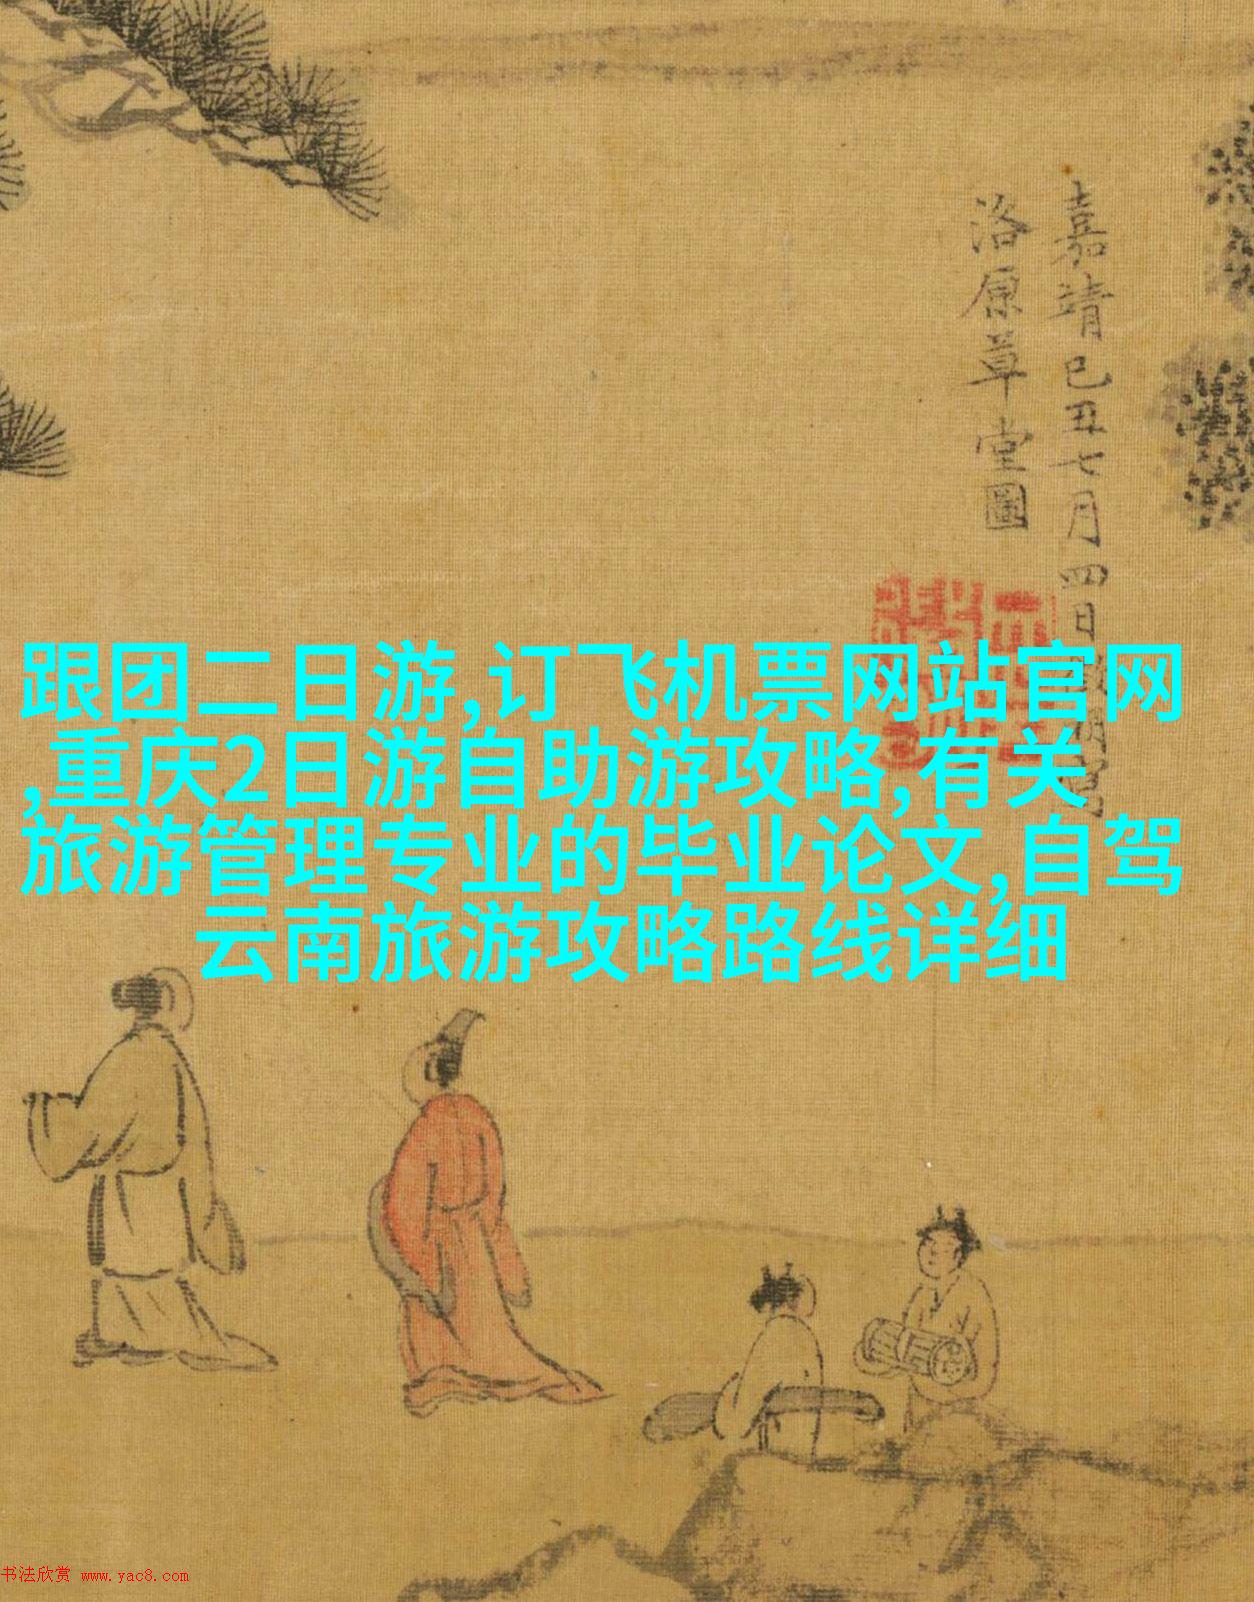 嘉靖己丑七月四日
洛原草堂圖
跟团二日游,订飞机票网站官网
,重庆2日游自助游攻略,有关
旅游管理专业的毕业论文,自驾
云南旅游攻略路线详细
书法欣赏 www.yac8.com